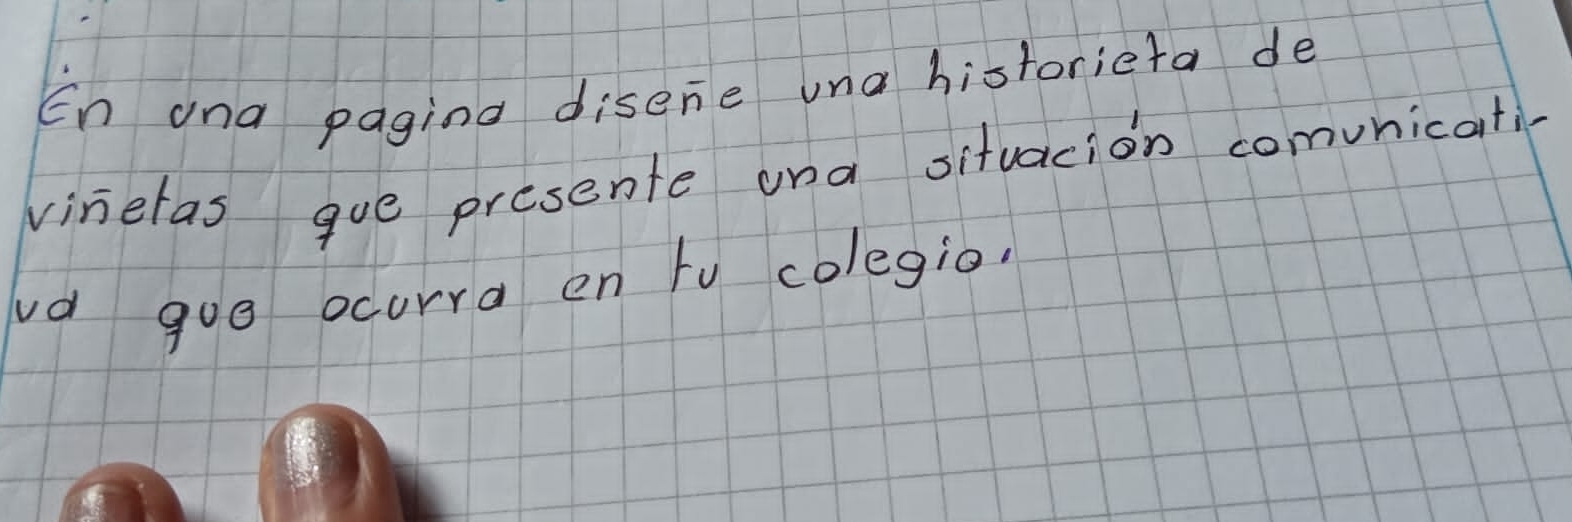 En una pagina diseñe una historieta de
viñetas que presente una situación comunicati-
va que ocurra en tu colegio.